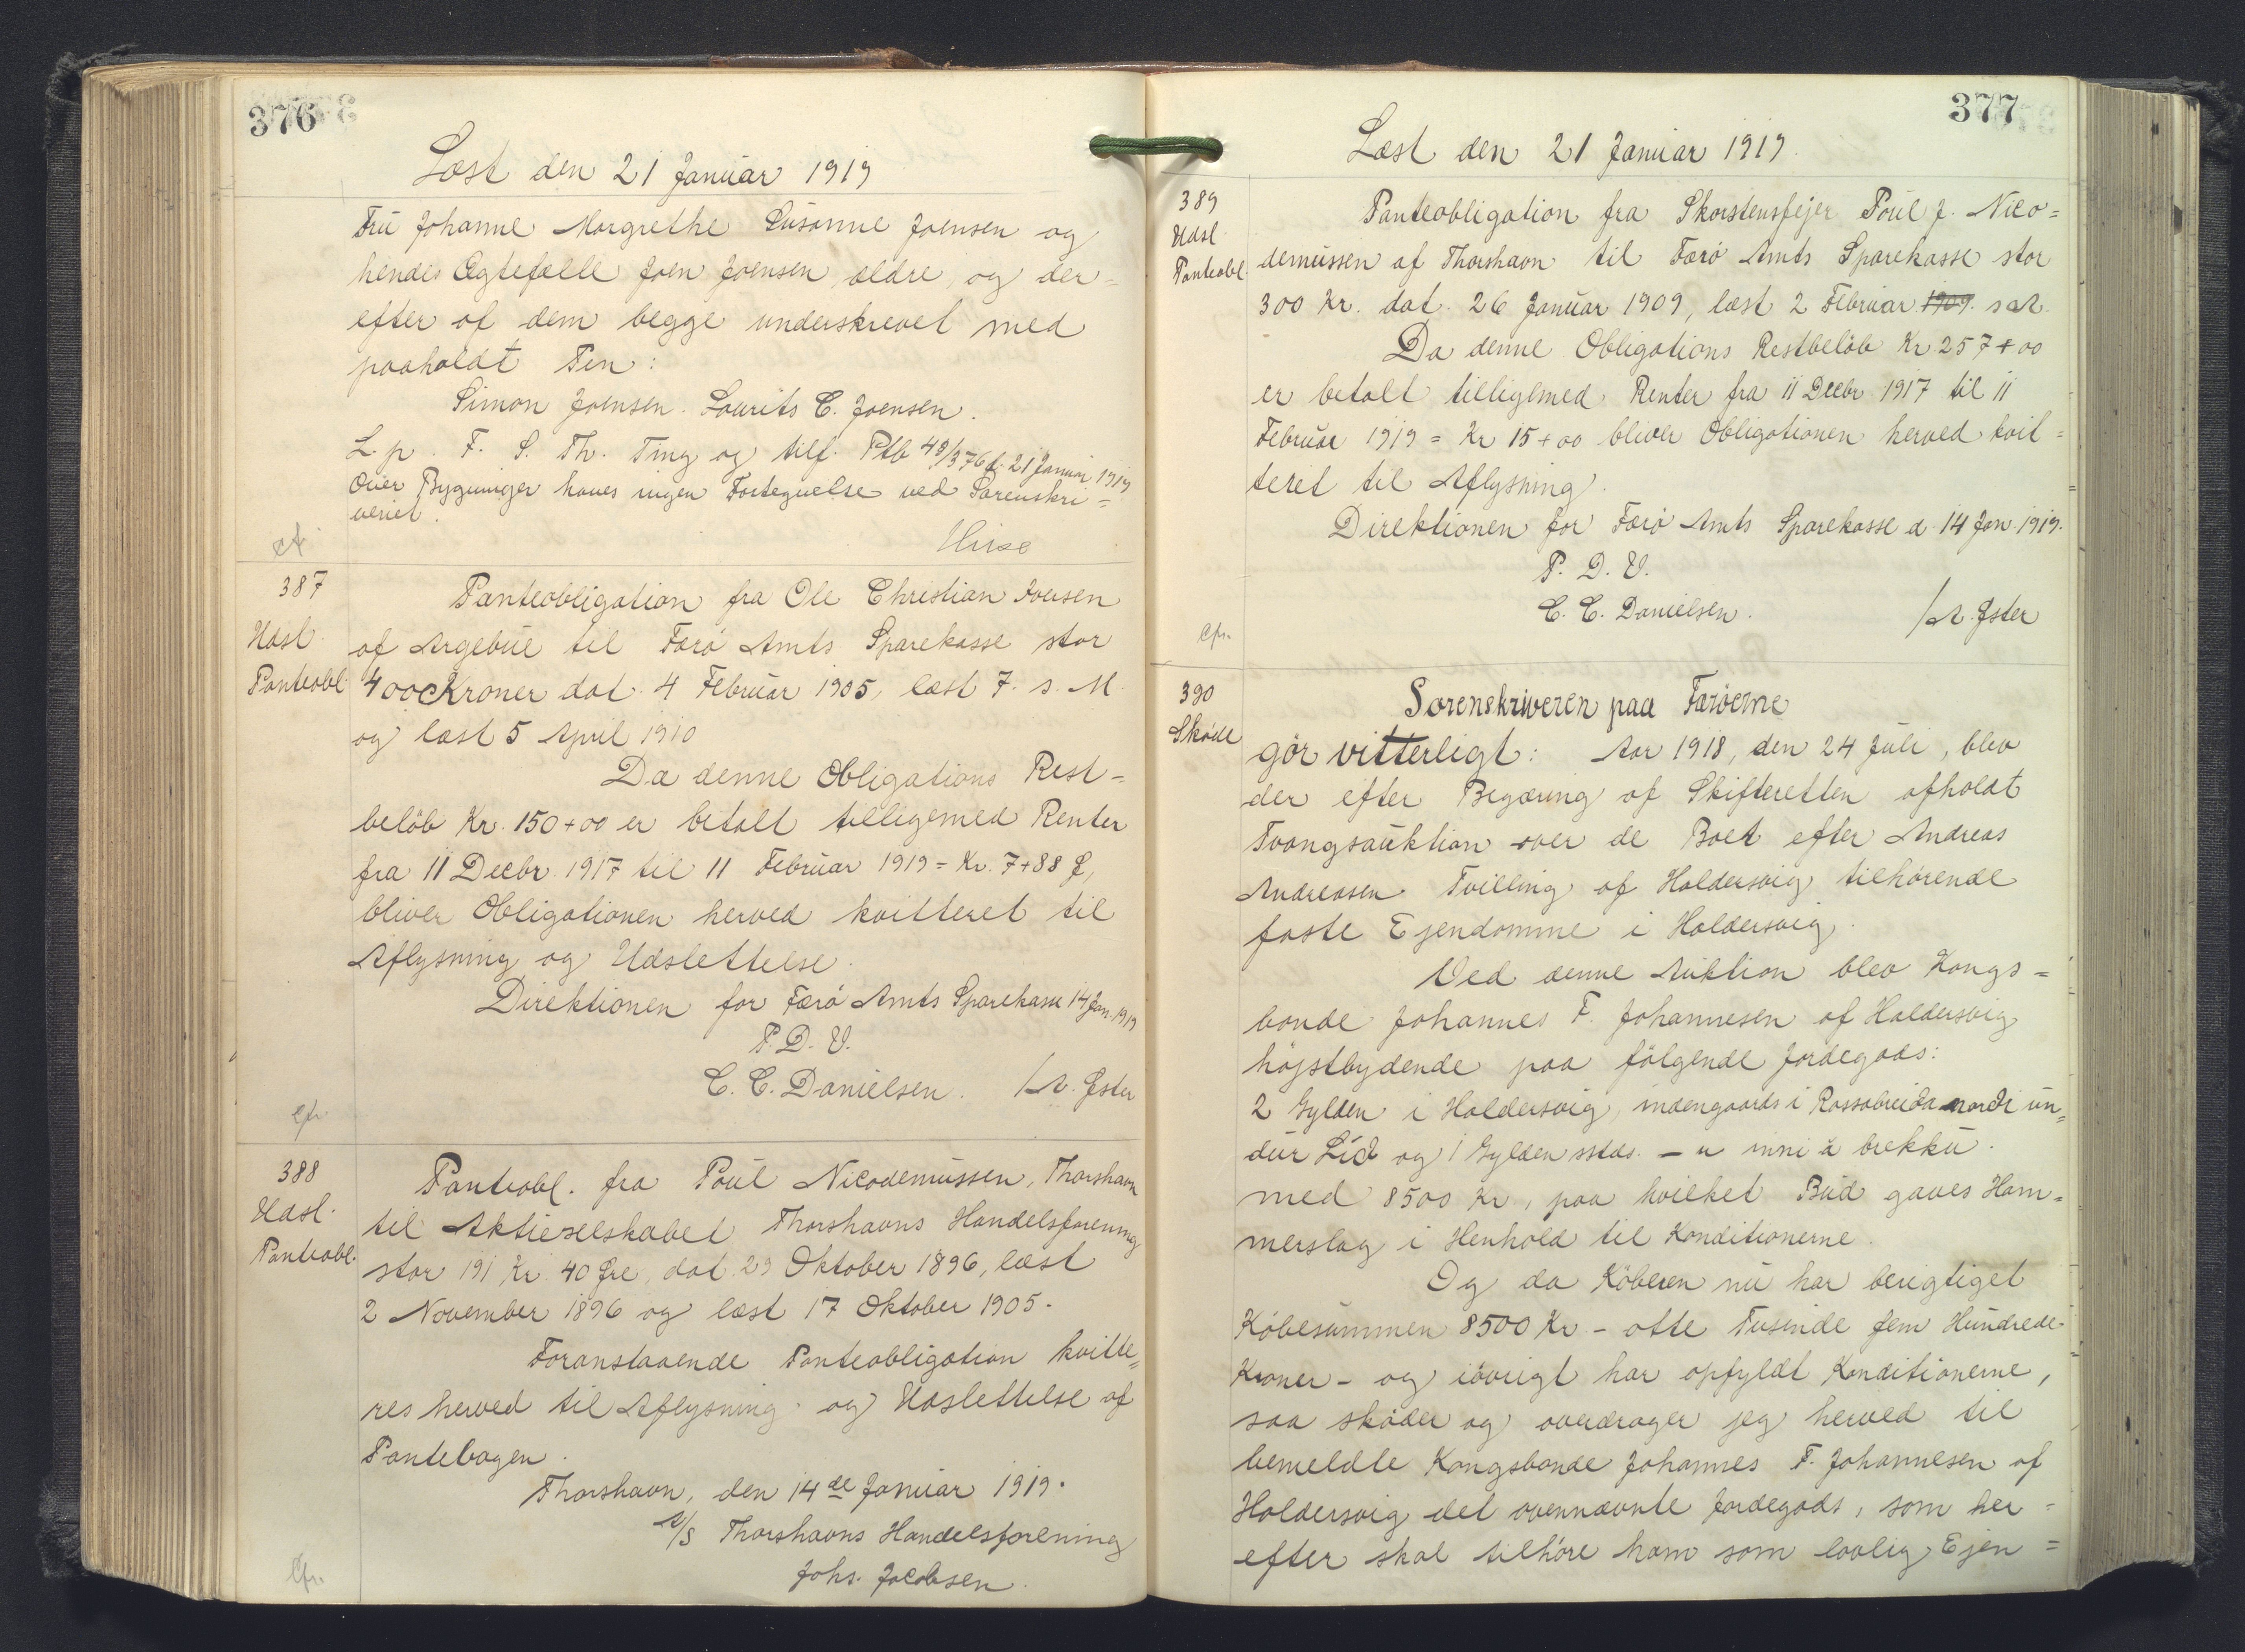 376
Læst den 21 Januar 1919
Fru Johanne Margrethe Susanne Joensen og
hendes Ægtefælle Joen Joensen, ældre, og der-
efter af dem begge underskrevet med
paaholdt Pen:
Simon Joensen. Lourits C. Joensen.
L. p. F. S. Th. Ting og tilf. Ptb 4 8/376 d. 21 Januar 1919
Over Bygninger haves ingen Fortegnelse ved Sorenskri=
veriet.
cf.
387
Udsl.
Panteobl.
Panteobligation fra Ole Christian Joensen
af Argebøe til Færø Amts Sparekasse stor
400 Kroner dat. 4 Februar 1905, læst 7. s. M.
og læst 5 April 1910
Da denne Obligations Rest-
beløb Kr. 150+00 er betalt tilligemed Renter
fra 11 Decbr. 1917 til 11 Februar 1919 = Kr. 7+88 Ø,
bliver Obligationen herved kvitteret til
Aflysning og Udslettelse.
Direktionen for Færø Amts Sparekasse 14 Jan. 1919
P. D. V.
C. C. Danielsen. /A. Jster
cfr.
388
Udsl.
Panteobl.
Panteobl. fra Poul Nicodemussen, Thorshavn
til Aktieselskabet Thorshavns Handelsforening
stor 191 Kr. 40 Øre, dat. 29 Oktober 1896, læst
2 November 1896 og læst 17 Oktober 1905.
Foranstaaende Panteobligation kvitte=
res herved til Aflysning og Udslettelse af
Pantebogen.
Thorshavn, den 14de Januar 1919.
A/S Thorshavns Handelsforening
Johs. Jacobsen.
cfr.
377
Læst den 21 Januar 1919.
389
Udsl.
Panteobl.
Panteobligation fra Skorstensfejer Poul J. Nico=
demussen af Thorshavn til Færø Amts Sparekasse stor
300 Kr. dat. 26 Januar 1909, læst 2 Februar 1909. s A.
Da denne Obligations Restbeløb Kr. 257+00
er betalt tilligemed Renter fra 11 Decbr 1917 til 11
Februar 1919 = Kr 15+00 bliver Obligationen herved kvit=
teret til Aflysning.
Direktionen for Færø Amts Sparekasse d. 14 Jan. 1919.
P. D. V.
C. C. Danielsen. /A. Jster
cfr.
390
Skøde
Sorenskriveren paa Færøerne
gør vitterligt: Aar 1918, den 24 Juli, blev
der efter Begæring af Skifteretten afholdt
Tvangsauktion over de Boet efter Andreas
Andreasen Tvilling af Haldersvig tilhørende
faste Ejendomme i Haldersvig.
Ved denne Auktion blev Kongs=
bonde Johannes F. Johannesen af Haldersvig
højstbydende paa følgende Jordegods:
2 Gylden i Haldersvig, indengaards i Rossabreida nordi un=
dur Lid og 1 Gylden sstds. - u inni á brekku.
med 8500 Kr, paa hvilket Bud gaves Ham=
merslag i Henhold til Konditionerne.
Og da Køberen nu har berigtiget
Købesummen 8500 Kr - otte Tusinde fem Hundrede
Kroner - og iøvrigt har opfyldt Konditionerne,
saa skøder og overdrager jeg herved til
bemeldte Kongsbonde Johannes F. Johannesen af
Haldersvig det ovennævnte Jordegods, som her=
efter skal tilhøre ham som lovlig Ejen=